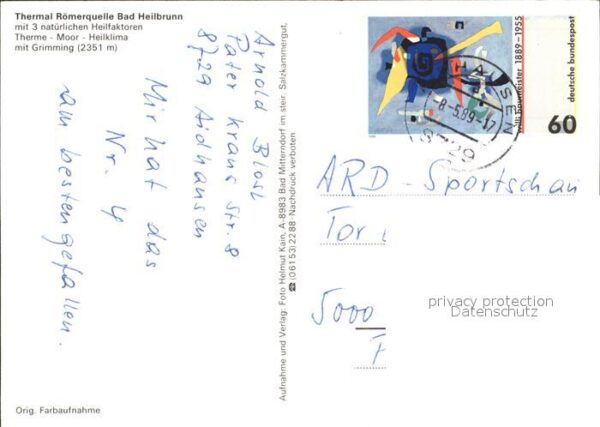 Thermal Römerquelle Bad Heilbrunn
mit 3 natürlichen Heilfaktoren
Therme - Moor - Heilklima
mit Grimming (2351 m)
Arnold Blösl
Pater Kraus Str. 8
8729 Aidhausen
Mir hat das
Nr. 4
am besten gefallen.
Orig. Farbaufnahme
Aufnahme und Verlag: Foto Helmut Kain, A-8983 Bad Mitterndorf im steir. Salzkammergut,
☎ (06153) 2288 · Nachdruck verboten
willi baumeister 1889-1955
deutsche bundespost
60
-8.5.89-17
8729
ARD - Sportschau
Tor
5000
privacy protection
Datenschutz